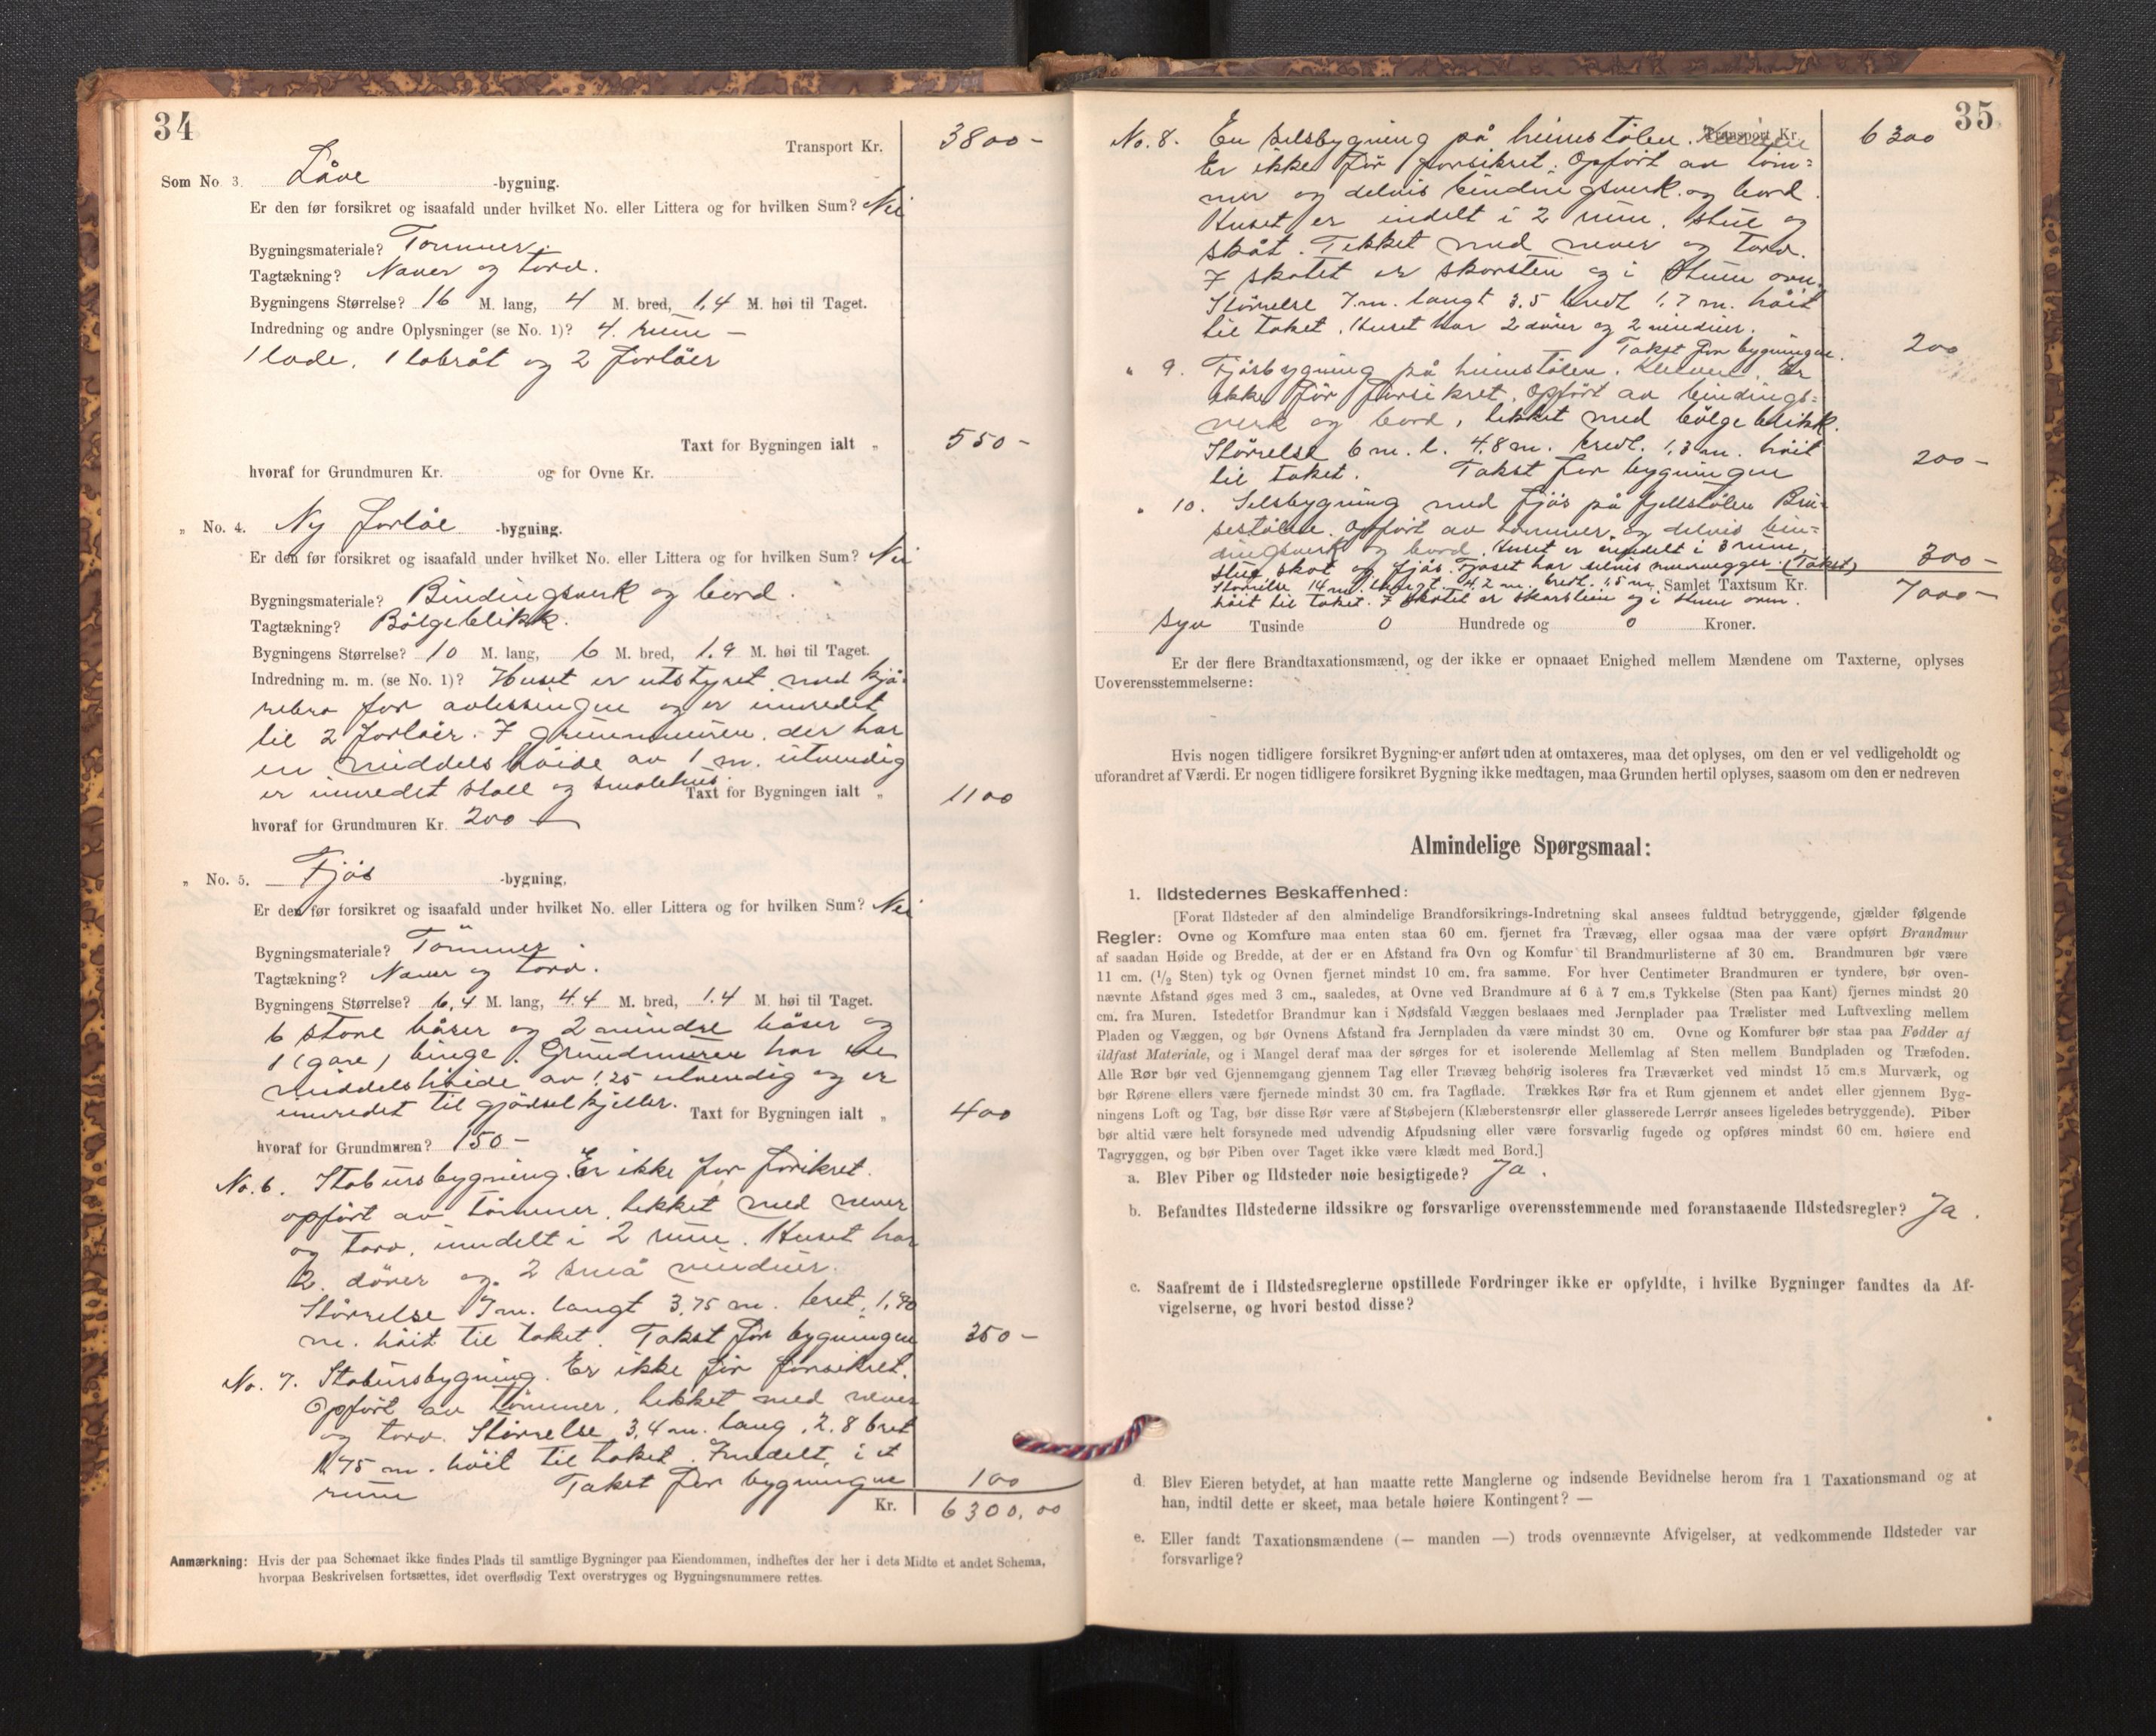 34
Transport Kr. 3800-
Som No. 3. Låve -bygning.
Er den før forsikret og isaafald under hvilket No. eller Littera og for hvilken Sum? Nei
Bygningsmateriale? Tømmer.
Tagtækning? Næver og torv.
Bygningens Størrelse? 16 M. lang, 4 M. bred, 1,4 M. høi til Taget.
Indredning og andre Oplysninger (se No. 1)? 4. rum -
1 lade, 1 labråt og 2 forlåer
Taxt for Bygningen ialt „ 550-
hvoraf for Grundmuren Kr. og for Ovne Kr.
„ No. 4. Ny forlåe -bygning.
Er den før forsikret og isaafald under hvilket No. eller Littera og for hvilken Sum? Nei
Bygningsmateriale? Bindingsverk og bord.
Tagtækning? Bølgeblikk.
Bygningens Størrelse? 10 M. lang, 6 M. bred, 1.9 M. høi til Taget.
Indredning m. m. (se No. 1)? Huset er utstyret med kjø-
rebro for avlessingen og er innredet
til 2 forlåer. I grunnmuren, der har
en middelshöide av 1 m. utvendig
er innredet stall og smalehus.
Taxt for Bygningen ialt „ 1100
hvoraf for Grundmuren Kr. 200 -
„ No. 5. Fjös -bygning.
Er den før forsikret og isaafald under hvilket No. eller Littera og for hvilken Sum? Nei
Bygningsmateriale? Tömmer.
Tagtækning? Næver og torv.
Bygningens Størrelse? 6,4 M. lang, 4.4 M. bred, 1.4 M. høi til Taget.
6 store båser og 2 mindre båser og
1 (gare) binge. Grundmuren har en
middelshöide av 1.25 utvendig og er
innredet til gjødselkjeller.
Taxt for Bygningen ialt „ 400
hvoraf for Grundmuren? 150-
No. 6. Stabursbygning. Er ikke før forsikret.
opført av tömmer, tekket med never
og torv, inndelt i 2 rum. Huset har
2. dörer og 2 små vinduer.
Störrelse 7 m. langt 3,75 m. bret, 1,90
m. höit til taket. Takst for bygningen 350-
No. 7. Stabursbygning. Er ikke før forsikret.
Opført av tömmer, tekket med never
og torv. Störrelse 3,4 m. lang, 2.8 bret
1.75 m. höit til taket. Inndelt i et
rum Takst for bygningen 100
Kr. 6300,00
Anmærkning: Hvis der paa Schemaet ikke findes Plads til samtlige Bygninger paa Eiendommen, indheftes der her i dets Midte et andet Schema,
hvorpaa Beskrivelsen fortsættes, idet overflødig Text overstryges og Bygningsnummere rettes.
35
No. 8. En selsbygning på heimstölen. Transport Kr. 6300
Er ikke før forsikret. Opført av tøm-
mer og delvis bindingsverk og bord.
Huset er indelt i 2 rum, stue og
skåt. Tekket med never og torv.
I skotet er skorsten og i stuen ovn.
Störrelse 7 m. langt 3.5 bredt 1,7 m. höit
til taket. Huset har 2 dörer og 2 vinduer.
Takst for bygningen. 200
„ 9. Fjösbygning på heimstölen. Er
ikke för forsikret. Opfört av bindings-
verk og bord, tekket med bölgeblikk.
Störrelse 6 m. l. 4,8 m. bredt. 1,3 m. höit
til taket. Takst for bygningen 200-
„ 10. Selsbygning med fjös på fjellstölen
Opfört av tömmer og delvis bin-
dingsverk og bord. Huset er inndelt i 3 rum,
stue skot og fjös. Fjöset har delvis murvegger. (Takst) 300-
Störrelse 14 m. langt. 4,2 m. bredt. 1,5 m. Samlet Taxtsum Kr. 7000-
höit til taket. I skotet er skorstein og i stuen ovn.
syv Tusinde 0 Hundrede og 0 Kroner.
Er der flere Brandtaxationsmænd, og der ikke er opnaaet Enighed mellem Mændene om Taxterne, oplyses
Uoverensstemmelserne:
Hvis nogen tidligere forsikret Bygning er anført uden at omtaxeres, maa det oplyses, om den er vel vedligeholdt og
uforandret af Værdi. Er nogen tidligere forsikret Bygning ikke medtagen, maa Grunden hertil oplyses, saasom om den er nedreven
Almindelige Spørgsmaal:
1. Ildstedernes Beskaffenhed:
[Forat Ildsteder af den almindelige Brandforsikrings-Indretning skal ansees fuldtud betryggende, gjælder følgende
Regler: Ovne og Komfure maa enten staa 60 cm. fjernet fra Trævæg, eller ogsaa maa der være opført Brandmur
af saadan Høide og Bredde, at der er en Afstand fra Ovn og Komfur til Brandmurlisterne af 30 cm. Brandmuren bør være
11 cm. (1/2 Sten) tyk og Ovnen fjernet mindst 10 cm. fra samme. For hver Centimeter Brandmuren er tyndere, bør oven-
nævnte Afstand øges med 3 cm., saaledes, at Ovne ved Brandmure af 6 à 7 cm.s Tykkelse (Sten paa Kant) fjernes mindst 20
cm. fra Muren. Istedetfor Brandmur kan i Nødsfald Væggen beslaaes med Jernplader paa Trælister med Luftvexling mellem
Pladen og Væggen, og bør Ovnens Afstand fra Jernpladen da være mindst 30 cm. Ovne og Komfurer bør staa paa Fødder af
ildfast Materiale, og i Mangel deraf maa der sørges for et isolerende Mellemlag af Sten mellem Bundpladen og Træfoden.
Alle Rør bør ved Gjennemgang gjennem Tag eller Trævæg behørig isoleres fra Træværket ved mindst 15 cm.s Murværk, og
bør Rørene ellers være fjernede mindst 30 cm. fra Tagflade. Trækkes Rør fra et Rum gjennem et andet eller gjennem Byg-
ningens Loft og Tag, bør disse Rør være af Støbejern (Klæberstensrør eller glasserede Lerrør ansees ligeledes betryggende). Piber
bør altid være helt forsynede med udvendig Afpudsning eller være forsvarlig fugede og opføres mindst 60 cm. høiere end
Tagryggen, og bør Piben over Taget ikke være klædt med Bord.]
a. Blev Piber og Ildsteder nøie besigtigede? Ja.
b. Befandtes Ildstederne ildssikre og forsvarlige overensstemmende med foranstaaende Ildstedsregler? Ja.
c. Saafremt de i Ildstedsreglerne opstillede Fordringer ikke er opfyldte, i hvilke Bygninger fandtes da Af-
vigelserne, og hvori bestod disse?
d. Blev Eieren betydet, at han maatte rette Manglerne og indsende Bevidnelse herom fra 1 Taxationsmand og at
han, indtil dette er skeet, maa betale høiere Kontingent? —
e. Eller fandt Taxationsmændene (— manden —) trods ovennævnte Afvigelser, at vedkommende Ildsteder var
forsvarlige?